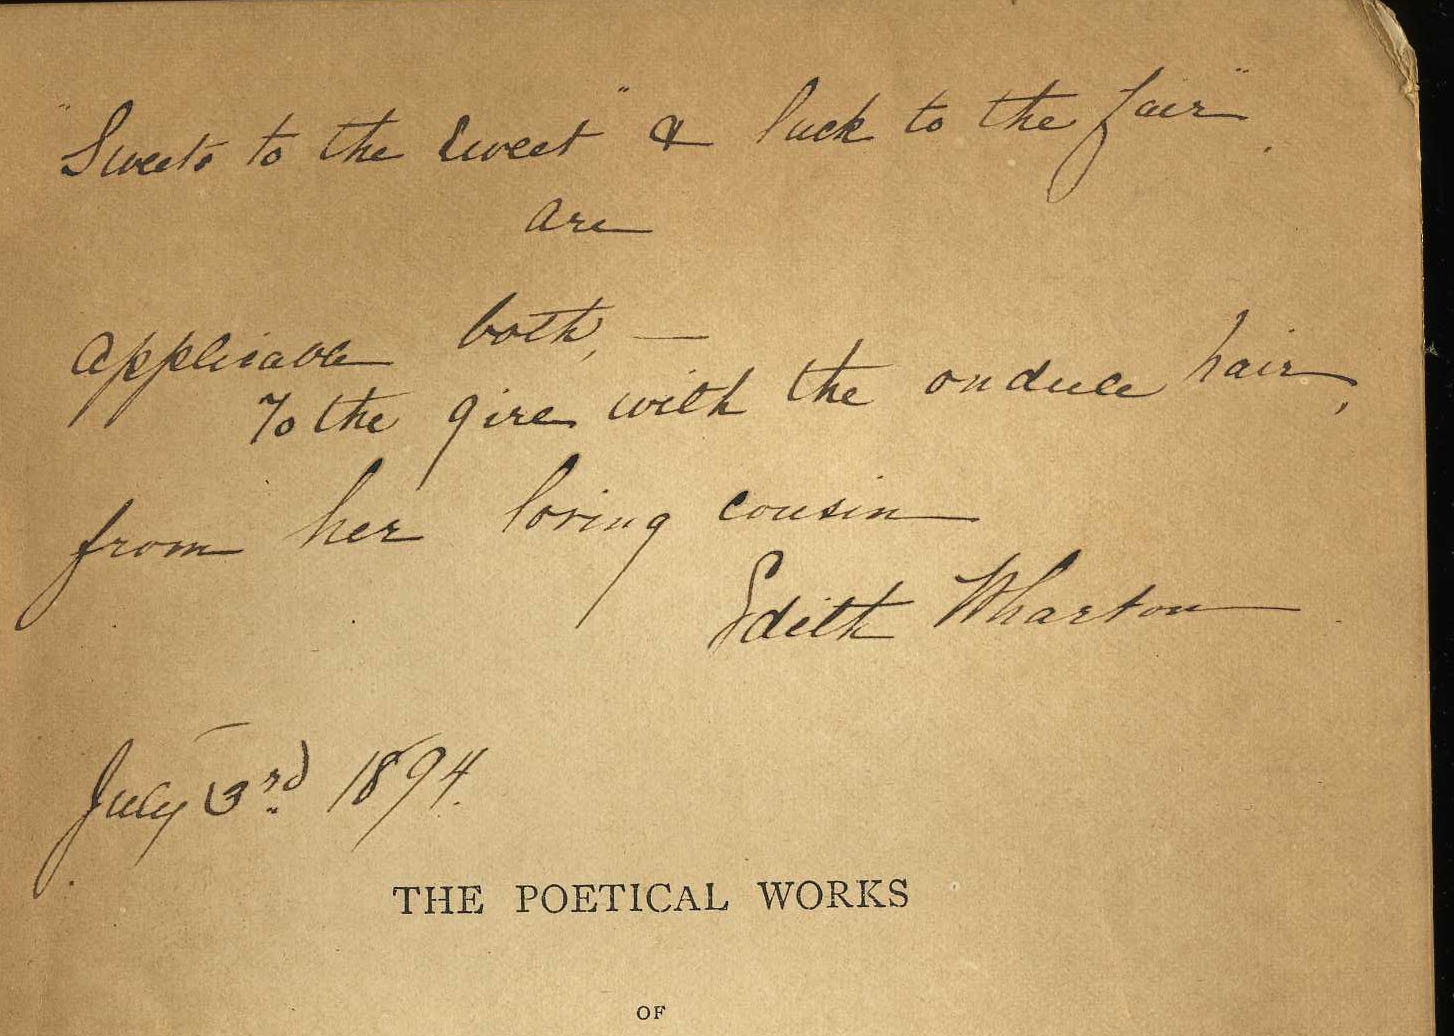 "Sweets to the sweet" & luck to the fair"
are
applicable both, —
To the girl with the ondule hair,
from her loving cousin
Edith Wharton
July 3rd 1894.
THE POETICAL WORKS
OF